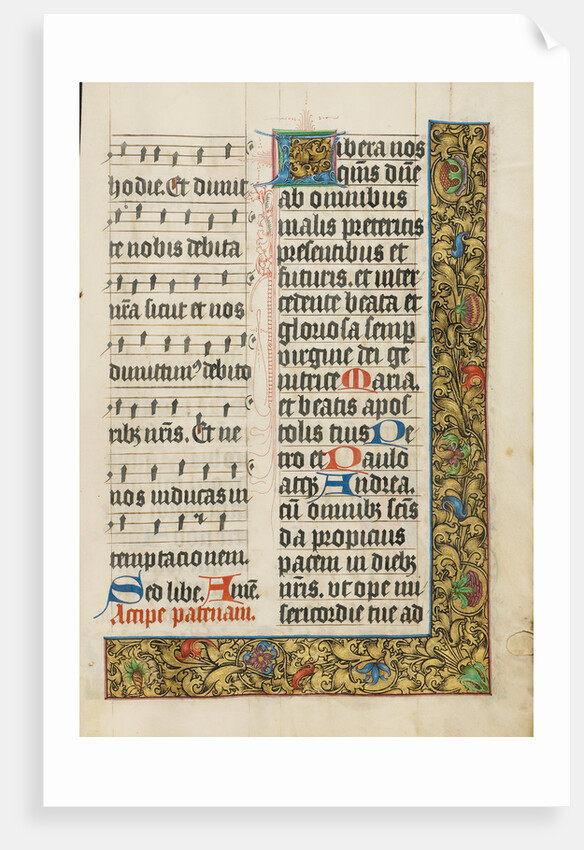 hodie. Et dimit
te nobis debita
nr̄a sicut et nos
dimittimꝰ debito
ribꝫ nr̄is. Et ne
nos inducas in
temptacionem.
Sed libe. Amē.
Accipe patenam.
Libera nos
q̄ms dn̄e
ab omnibus
malis preteritis
presentibus et
futuris. et inter
cedente beata et
gloriosa semp̄
virgine dei ge
nitrice Maria.
et beatis apos
tolis tuis Pe
tro et Paulo
atqꝫ Andrea.
cū omnibꝫ sc̄is
da propicius
pacem in diebꝫ
nr̄is. vt ope mi
sericordie tue ad